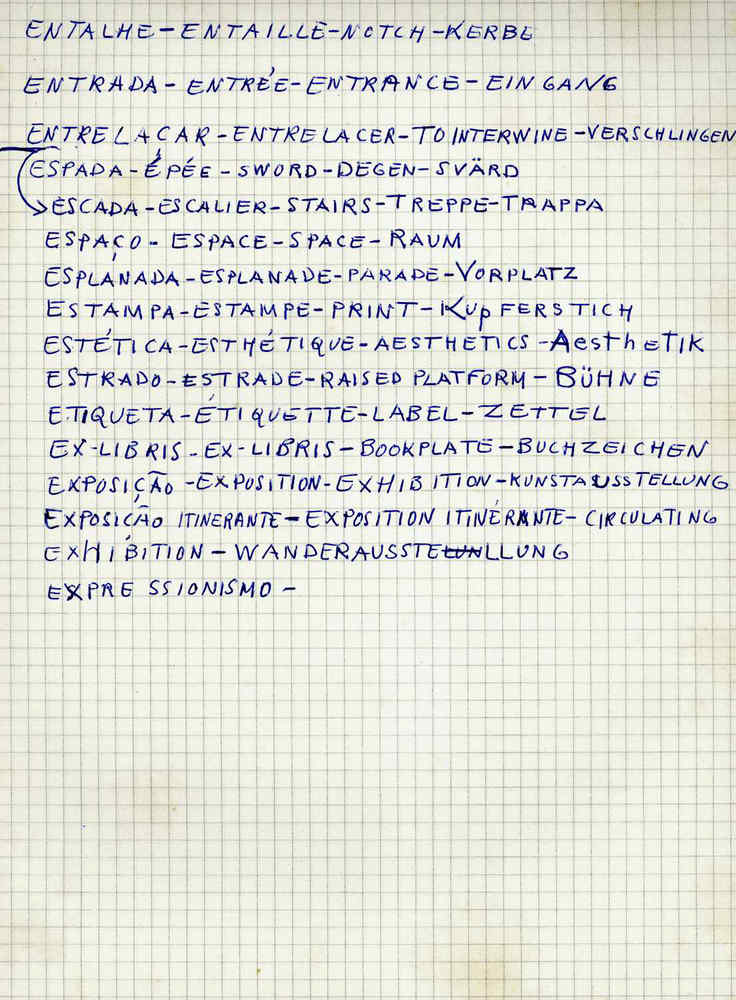 ENTALHE-ENTAILLE-NOTCH-KERBE
ENTRADA-ENTRÉE-ENTRANCE-EINGANG
ENTRELAÇAR-ENTRELACER-TO INTERWINE-VERSCHLINGEN
ESPADA-ÉPÉE-SWORD-DEGEN-SVÄRD
ESCADA-ESCALIER-STAIRS-TREPPE-TRAPPA
ESPAÇO-ESPACE-SPACE-RAUM
ESPLANADA-ESPLANADE-PARADE-VORPLATZ
ESTAMPA-ESTAMPE-PRINT-KUpFERSTICH
ESTÉTICA-ESTHÉTIQUE-AESTHETICS-AesthETIK
ESTRADO-ESTRADE-RAISED PLATFORM-BÜHNE
ETIQUETA-ÉTIQUETTE-LABEL-ZETTEL
EX-LIBRIS-EX-LIBRIS-BOOKPLATE-BUCHZEICHEN
EXPOSIÇÃO-EXPOSITION-EXHIBITION-KUNSTAUSSTELLUNG
EXPOSIÇÃO ITINERANTE-EXPOSITION ITINÉRANTE-CIRCULATING
EXHIBITION-WANDERAUSSTELLUNG
EXPRESSIONISMO-